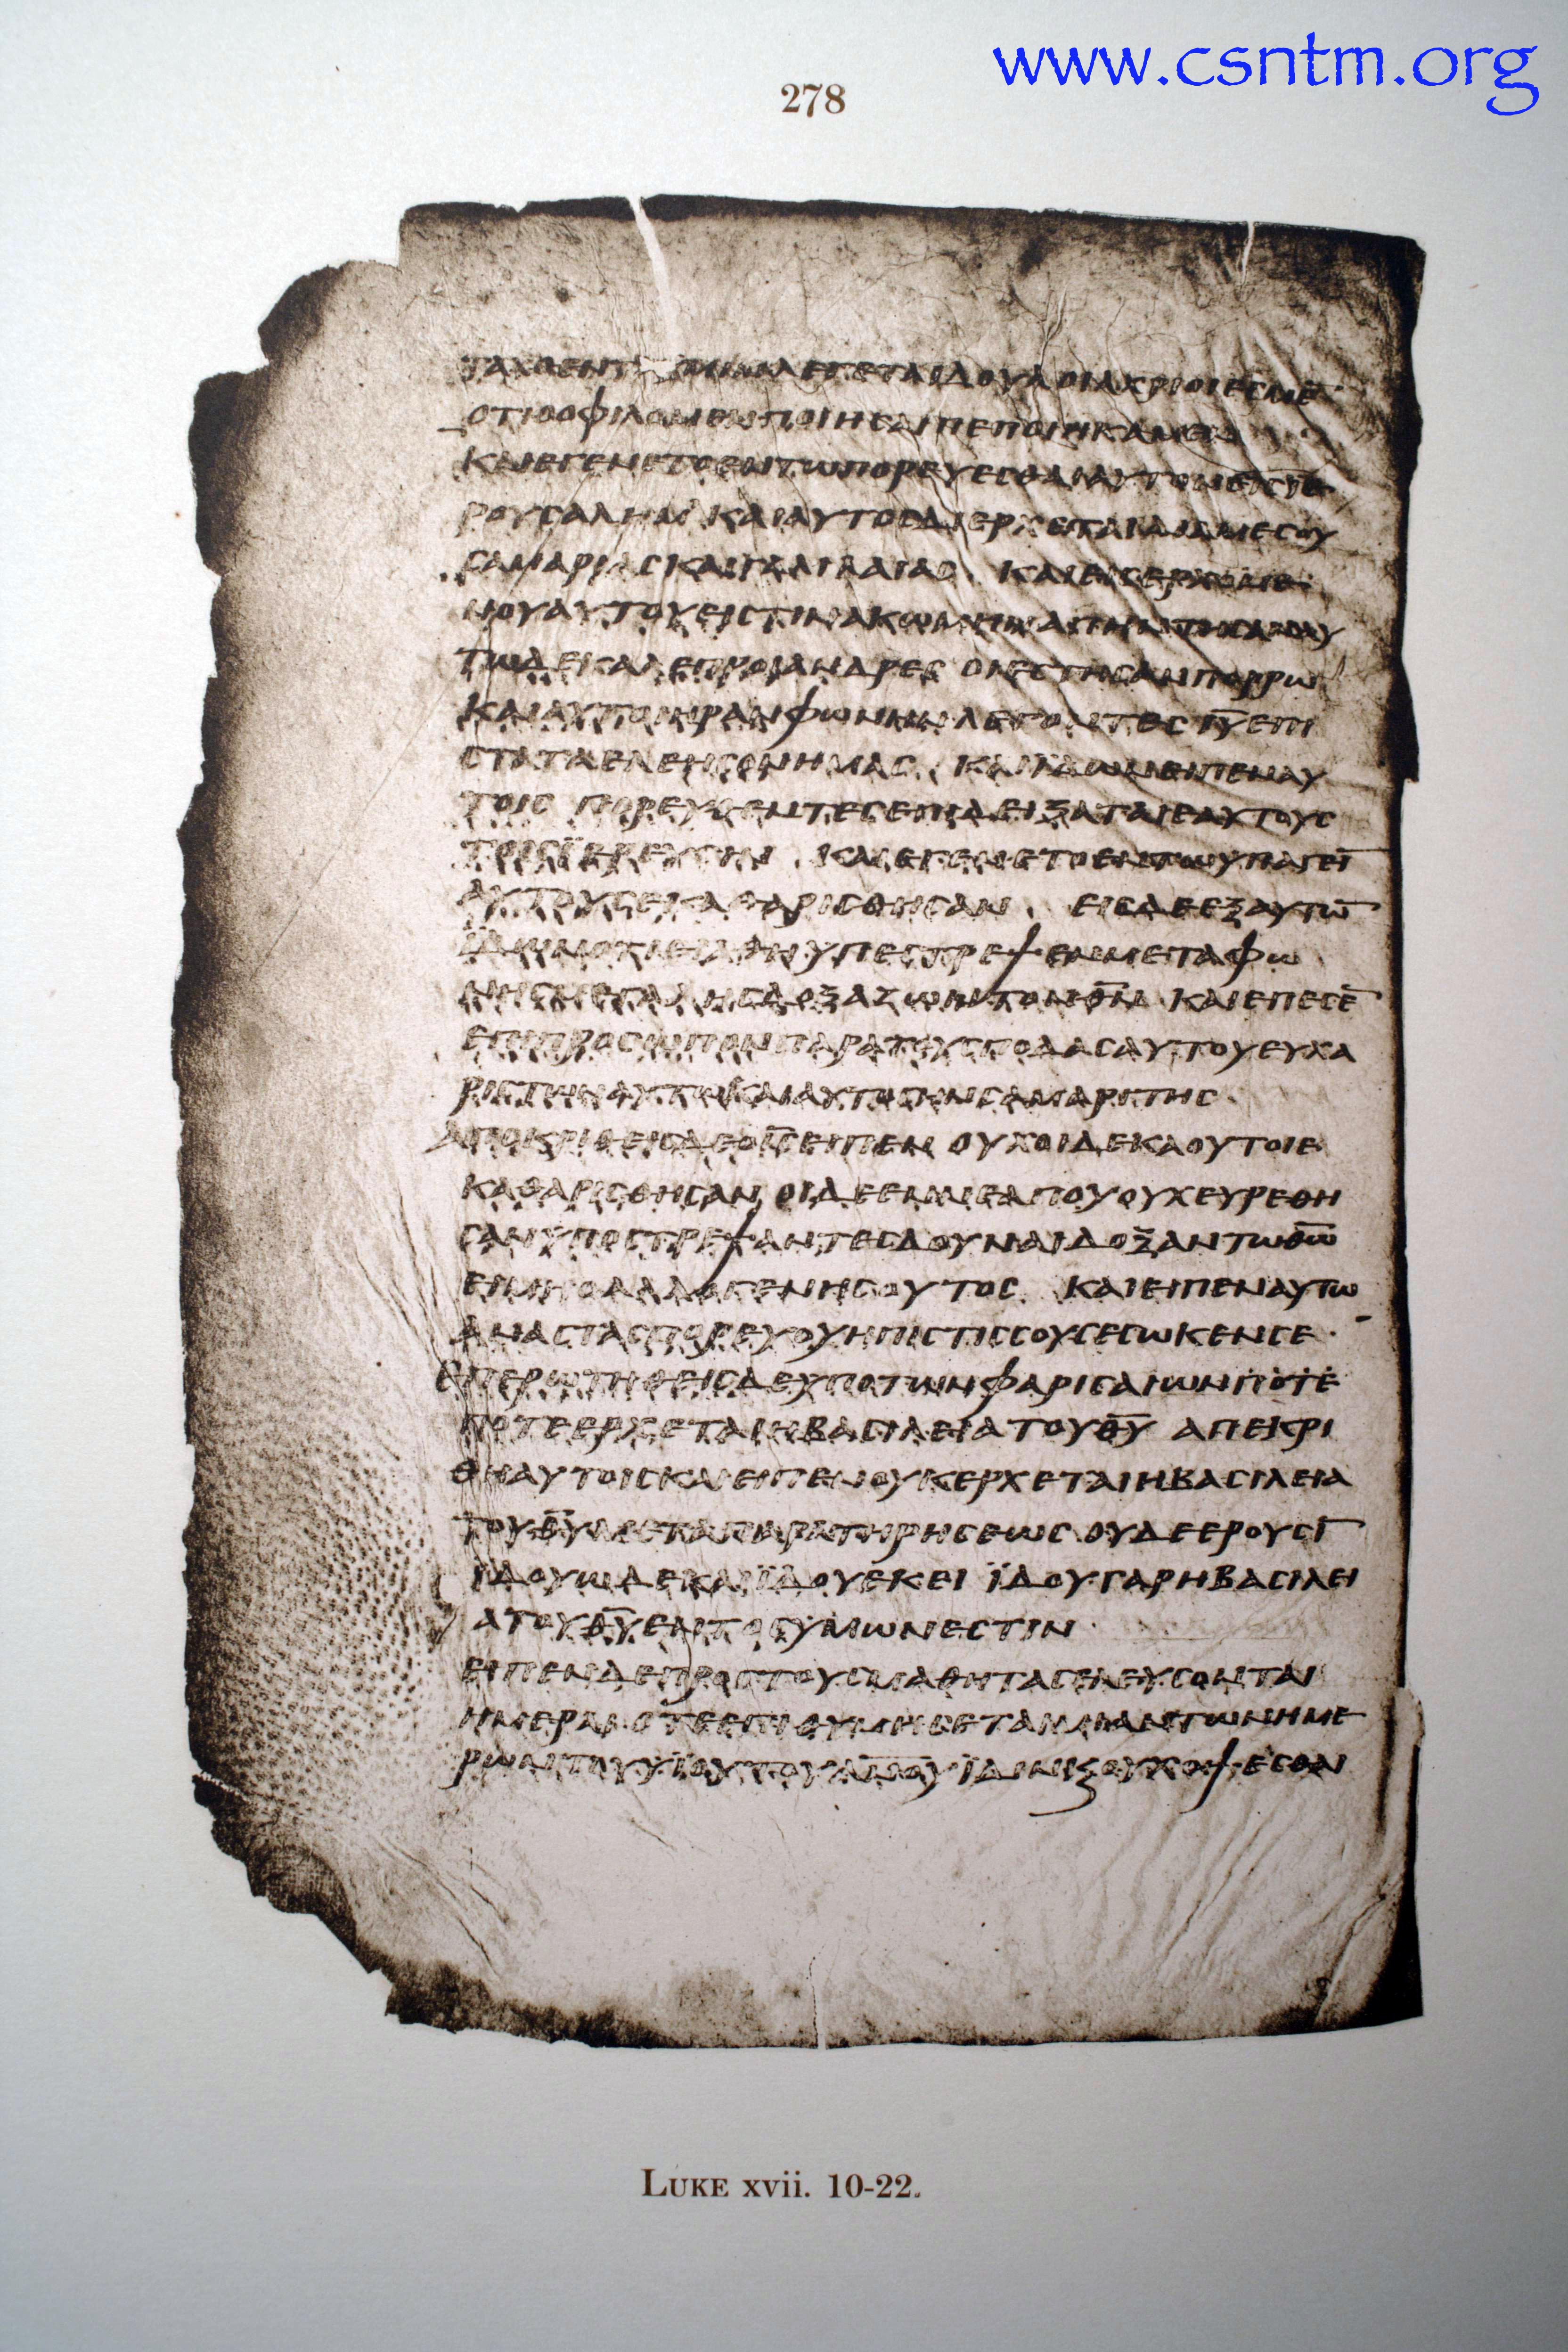 www.csntm.org
278
ΤΑΧΘΕΝΤΑ ΥΜΙΝ ΛΕΓΕΤΑΙ ΔΟΥΛΟΙ ΑΧΡΙΟΙ ΕСΜΕ
ΟΤΙ Ο ΟΦΙΛΟΜΕΝ ΠΟΙΗСΑΙ ΠΕΠΟΙΗΚΑΜΕΝ
ΚΑΙ ΕΓΕΝΕΤΟ ΕΝ ΤΩ ΠΟΡΕΥΕСΘΑΙ ΑΥΤΟΝ ΕΙС ΙΕ
ΡΟΥСΑΛΗΜ ΚΑΙ ΑΥΤΟС ΔΙΕΡΧΕΤΑΙ ΔΙΑ ΜΕСΟΥ
СΑΜΑΡΙΑС ΚΑΙ ΓΑΛΙΛΑΙΑС ΚΑΙ ΕΙСΕΡΧΟΜΕ
ΝΟΥ ΑΥΤΟΥ ΕΙС ΤΙΝΑ ΚΩΜΗΝ ΑΠΗΝΤΗСΑΝ ΑΥ
ΤΩ ΔΕΚΑ ΛΕΠΡΟΙ ΑΝΔΡΕС ΟΙ ΕСΤΗСΑΝ ΠΟΡΡΩ
ΚΑΙ ΑΥΤΟΙ ΗΡΑΝ ΦΩΝΗΝ ΛΕΓΟΝΤΕС ΙΥ ΕΠΙ
СΤΑΤΑ ΕΛΕΗСΟΝ ΗΜΑС ΚΑΙ ΙΔΩΝ ΕΙΠΕΝ ΑΥ
ΤΟΙС ΠΟΡΕΥΘΕΝΤΕС ΕΠΙΔΕΙΞΑΤΑΙ ΕΑΥΤΟΥС
ΤΟΙС ΙΕΡΕΥСΙΝ ΚΑΙ ΕΓΕΝΕΤΟ ΕΝ ΤΩ ΥΠΑΓΕΙ̅
ΑΥΤΟΥС ΕΚΑΘΑΡΙСΘΗСΑΝ ΕΙС ΔΕ ΕΞ ΑΥΤΩ̅
ΙΔΩΝ ΟΤΙ ΙΑΘΗ ΥΠΕСΤΡΕΨΕΝ ΜΕΤΑ ΦΩ
ΝΗС ΜΕΓΑΛΗС ΔΟΞΑΖΩΝ ΤΟΝ Θ̅Ν̅ ΚΑΙ ΕΠΕСΕ̅
ΕΠΙ ΠΡΟСΩΠΟΝ ΠΑΡΑ ΤΟΥС ΠΟΔΑС ΑΥΤΟΥ ΕΥΧΑ
ΡΙСΤΩΝ ΑΥΤΩ ΚΑΙ ΑΥΤΟС ΗΝ СΑΜΑΡΙΤΗС
ΑΠΟΚΡΙΘΕΙС ΔΕ Ο Ι̅С̅ ΕΙΠΕΝ ΟΥΧ ΟΙ ΔΕΚΑ ΟΥΤΟΙ Ε
ΚΑΘΑΡΙСΘΗСΑΝ ΟΙ ΔΕ ΕΝΝΕΑ ΠΟΥ ΟΥΧ ΕΥΡΕΘΗ
СΑΝ ΥΠΟСΤΡΕΨΑΝΤΕС ΔΟΥΝΑΙ ΔΟΞΑΝ ΤΩ Θ̅Ω̅
ΕΙ ΜΗ Ο ΑΛΛΟΓΕΝΗС ΟΥΤΟС ΚΑΙ ΕΙΠΕΝ ΑΥΤΩ
ΑΝΑСΤΑС ΠΟΡΕΥΟΥ Η ΠΙСΤΙС СΟΥ СΕСΩΚΕΝ СΕ
ΕΠΕΡΩΤΗΘΕΙС ΔΕ ΥΠΟ ΤΩΝ ΦΑΡΙСΑΙΩΝ ΠΟΤΕ
ΠΟΤΕ ΕΡΧΕΤΑΙ Η ΒΑСΙΛΕΙΑ ΤΟΥ Θ̅Υ̅ ΑΠΕΚΡΙ
ΘΗ ΑΥΤΟΙС ΚΑΙ ΕΙΠΕΝ ΟΥΚ ΕΡΧΕΤΑΙ Η ΒΑСΙΛΕΙΑ
ΤΟΥ Θ̅Υ̅ ΜΕΤΑ ΠΑΡΑΤΗΡΗСΕΩС ΟΥΔΕ ΕΡΟΥСΙ̅
ΙΔΟΥ ΩΔΕ ΚΑΙ ΙΔΟΥ ΕΚΕΙ ΪΔΟΥ ΓΑΡ Η ΒΑСΙΛΕΙ
Α ΤΟΥ Θ̅Υ̅ ΕΝΤΟС ΥΜΩΝ ΕСΤΙΝ
ΕΙΠΕΝ ΔΕ ΠΡΟС ΤΟΥС ΜΑΘΗΤΑС ΕΛΕΥСΟΝΤΑΙ
ΗΜΕΡΑΙ ΟΤΕ ΕΠΙΘΥΜΗСΕΤΑΙ ΜΙΑΝ ΤΩΝ ΗΜΕ
ΡΩΝ ΤΟΥ ΥΪΟΥ ΤΟΥ Α̅Ν̅Ο̅Υ̅ ΪΔΙΝ Κ ΟΥΚ ΟΨΕСΘΝ
LUKE xvii. 10-22.